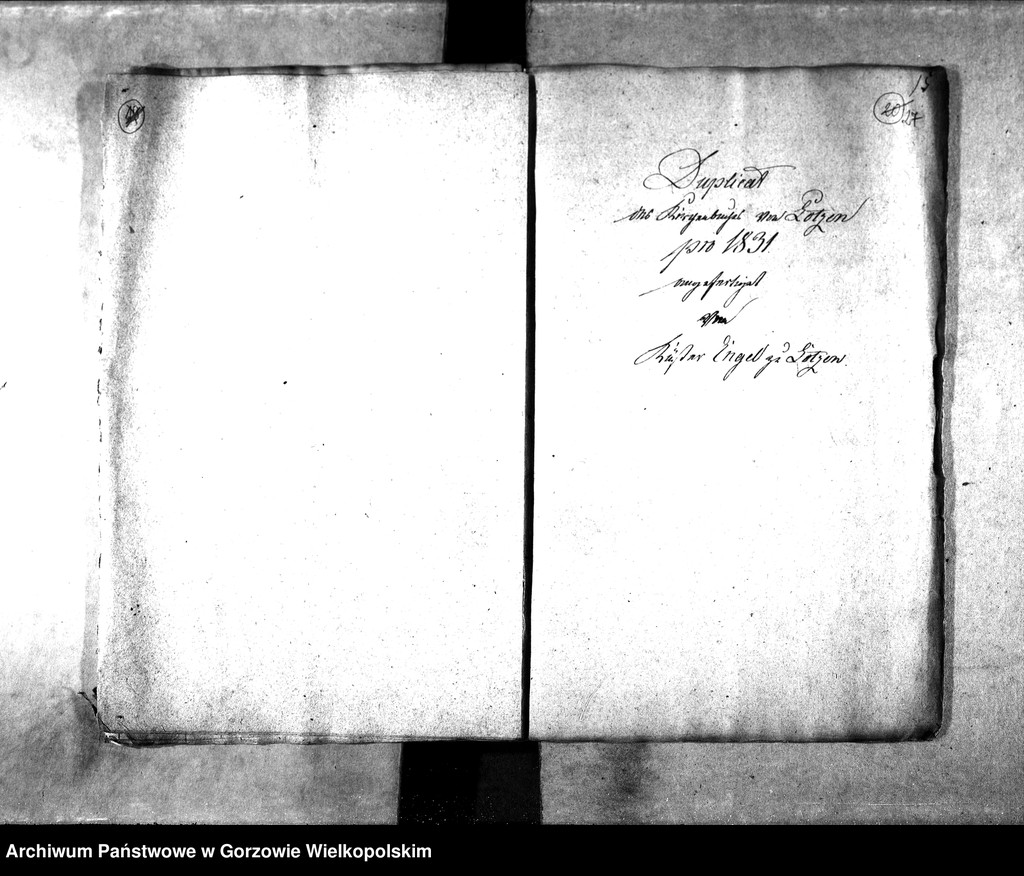 15
20
27
Duplicat
des Kirchenbuches von Lotzen
pro 1831.
angefertigt
vom
Küster Engel zu Lotzen.
Archiwum Państwowe w Gorzowie Wielkopolskim